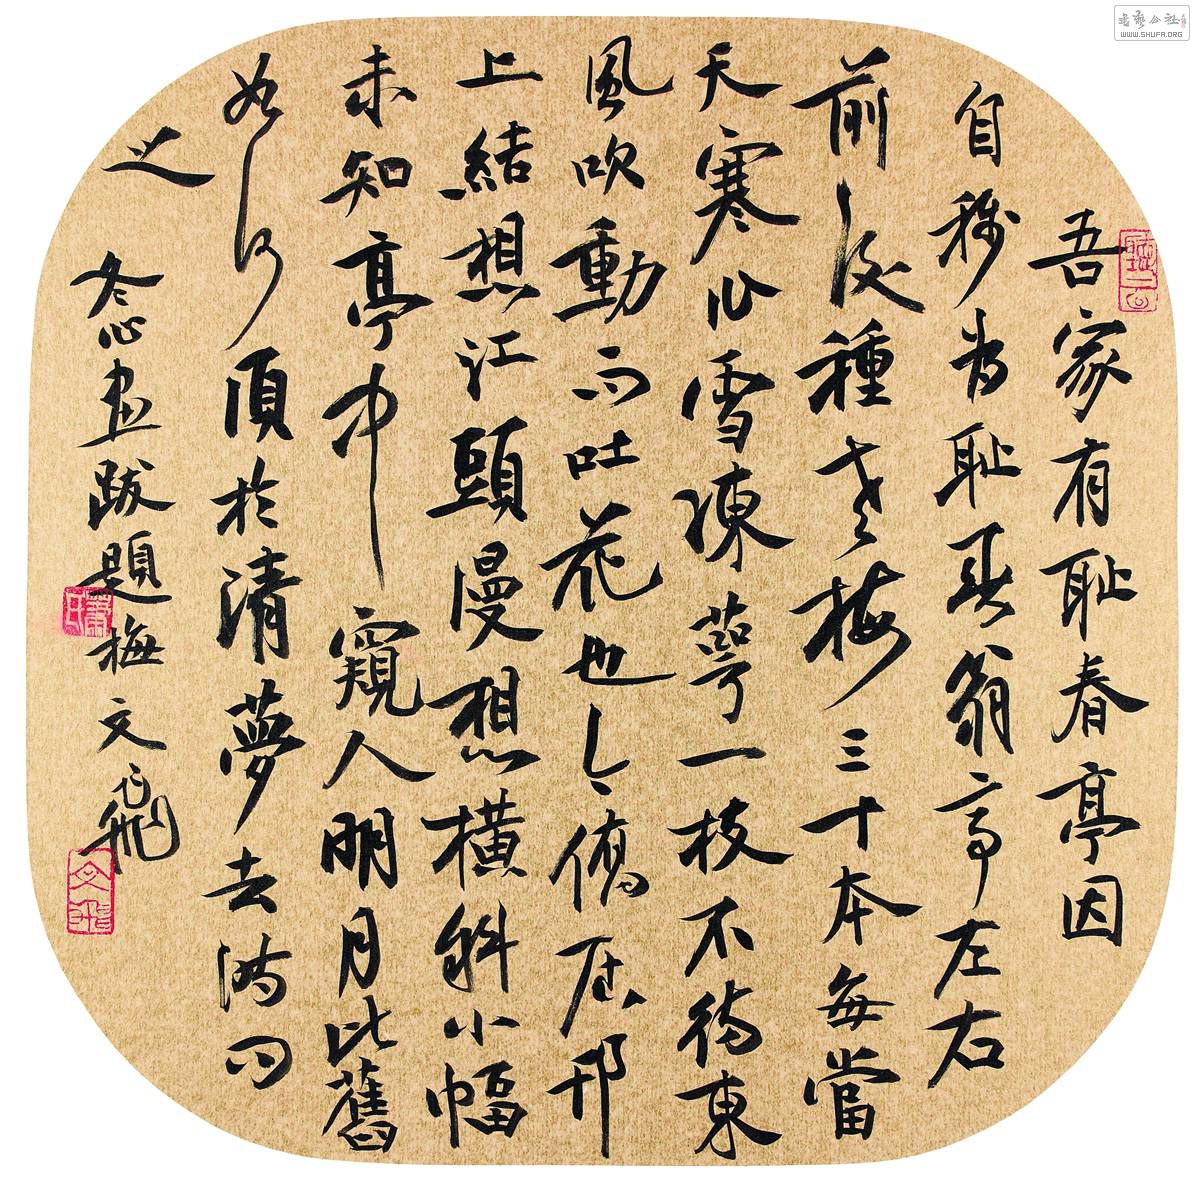 吾家有耻春亭因
自稱為耻春翁亭左右
前後種老梅三十本每當
天寒雪凍萼一枝不待東
風吹動而吐花也今僑居邗
上結想江頭漫想橫斜小幅
未知亭中窺人明月比舊
如何須於清夢去問
之
冬心畫跋題梅 文飛
文飛
書藝公社
WWW.SHUFA.ORG